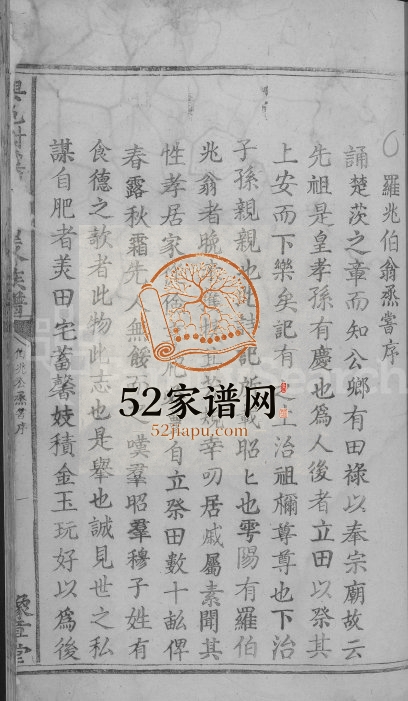 羅兆伯翁烝嘗序
誦楚茨之章而知公卿有田祿以奉宗廟故云
先祖是皇孝孫有慶也為人後者立田以祭其
上安而下樂矣記有之上治祖禰尊尊也下治
子孫親親也此詩記所載昭ヒ也雩陽有羅伯
兆翁者晚幸叨居戚屬素聞其
性孝居家自立祭田數十畝俾
春露秋霜先人無餒嘆羣昭羣穆子姓有
食德之歌者此物此志也是舉也誠見世之私
謀自肥者美田宅蓄馨妓積金玉玩好以為後
伯兆公烝嘗序
一
豫章堂
52家谱网
52jiapu.com